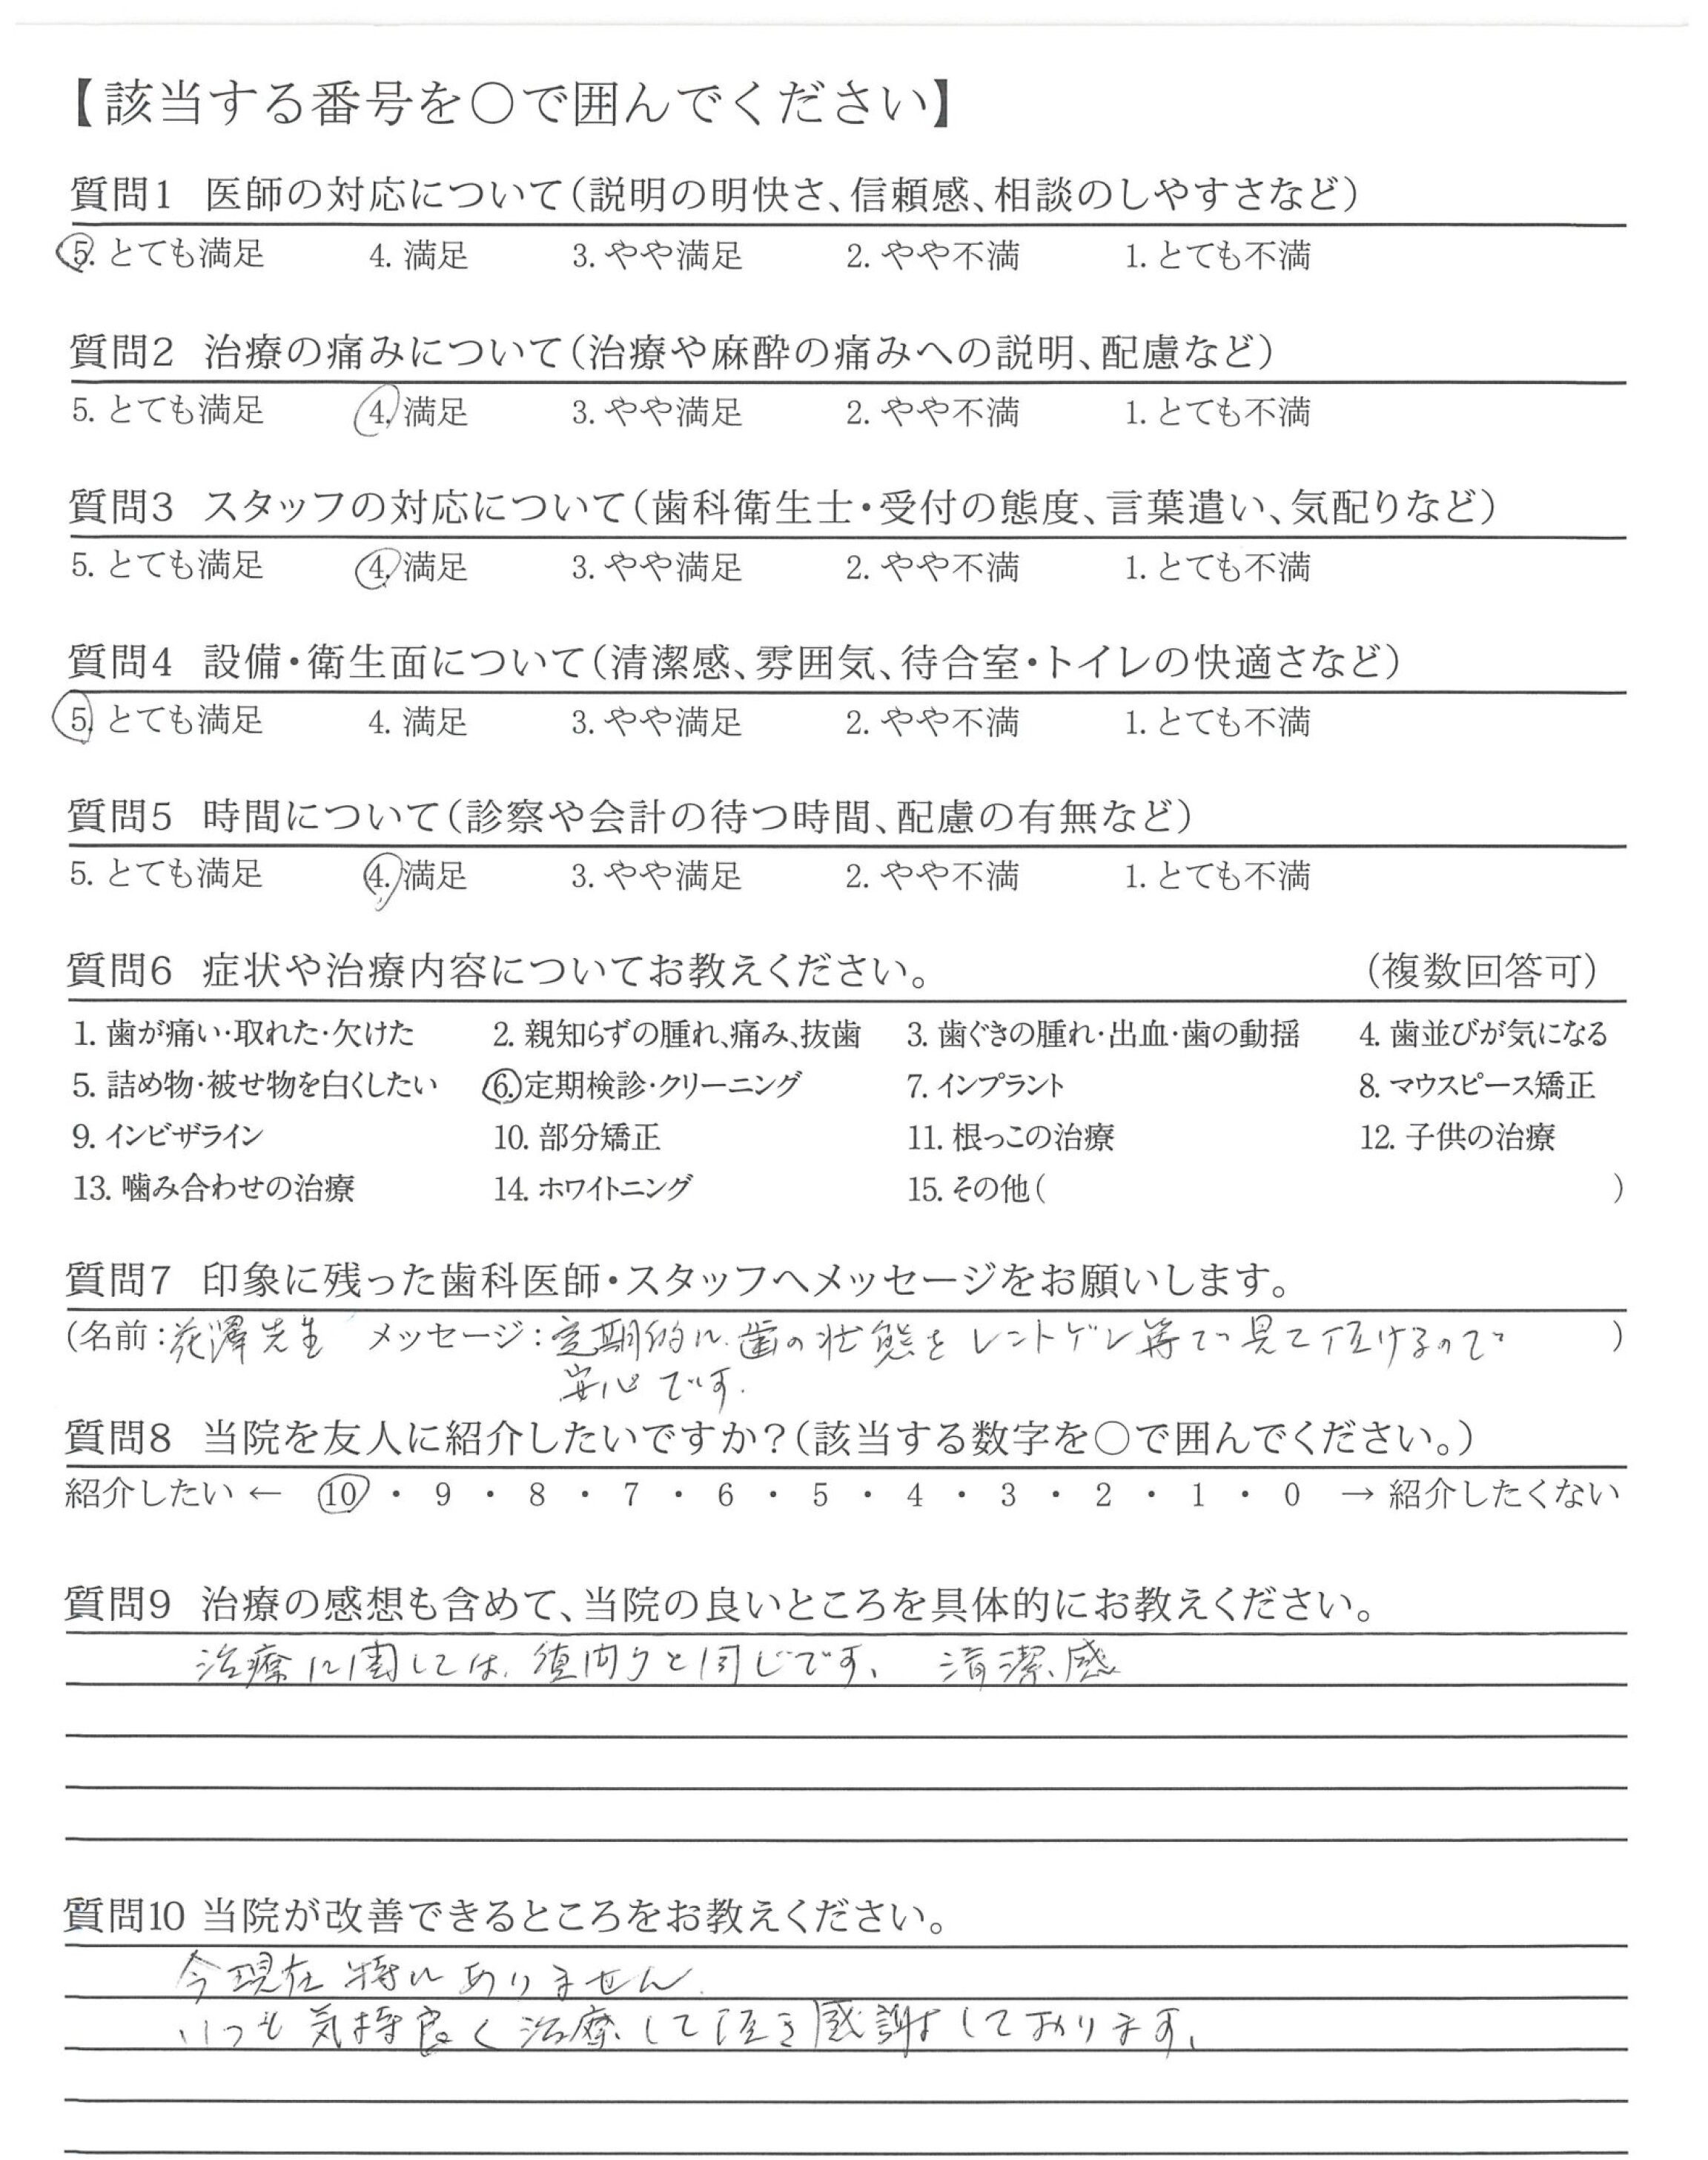 【該当する番号を○で囲んでください】
質問1 医師の対応について(説明の明快さ、信頼感、相談のしやすさなど)
5. とても満足 4. 満足 3. やや満足 2. やや不満 1. とても不満
質問2 治療の痛みについて(治療や麻酔の痛みへの説明、配慮など)
5. とても満足 4. 満足 3. やや満足 2. やや不満 1. とても不満
質問3 スタッフの対応について(歯科衛生士・受付の態度、言葉遣い、気配りなど)
5. とても満足 4. 満足 3. やや満足 2. やや不満 1. とても不満
質問4 設備・衛生面について(清潔感、雰囲気、待合室・トイレの快適さなど)
5. とても満足 4. 満足 3. やや満足 2. やや不満 1. とても不満
質問5 時間について(診察や会計の待つ時間、配慮の有無など)
5. とても満足 4. 満足 3. やや満足 2. やや不満 1. とても不満
質問6 症状や治療内容についてお教えください。 (複数回答可)
1. 歯が痛い・取れた・欠けた 2. 親知らずの腫れ、痛み、抜歯 3. 歯ぐきの腫れ・出血・歯の動揺 4. 歯並びが気になる
5. 詰め物・被せ物を白くしたい 6. 定期検診・クリーニング 7. インプラント 8. マウスピース矯正
9. インビザライン 10. 部分矯正 11. 根っこの治療 12. 子供の治療
13. 噛み合わせの治療 14. ホワイトニング 15. その他( )
質問7 印象に残った歯科医師・スタッフへメッセージをお願いします。
(名前:花澤先生 メッセージ:定期的に歯の状態をレントゲン等で見て頂けるので )
安心です。
質問8 当院を友人に紹介したいですか?(該当する数字を○で囲んでください。)
紹介したい ← 10 ・ 9 ・ 8 ・ 7 ・ 6 ・ 5 ・ 4 ・ 3 ・ 2 ・ 1 ・ 0 → 紹介したくない
質問9 治療の感想も含めて、当院の良いところを具体的にお教えください。
治療に関しては、質問7と同じです、 清潔感
質問10 当院が改善できるところをお教えください。
今現在特にありません.
いつも気持良く治療して頂き感謝しております、